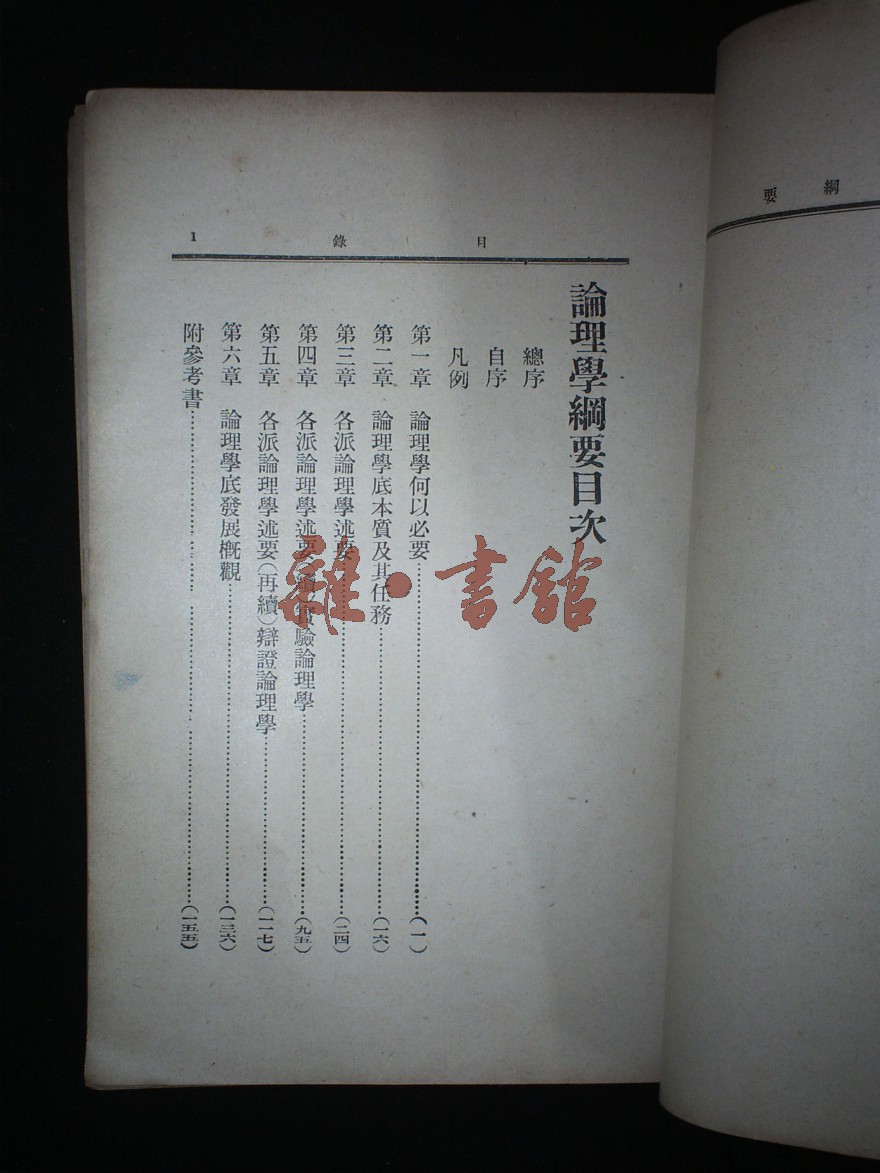 綱要
目錄
1
論理學綱要目次
總序
自序
凡例
第一章 論理學何以必要……(一)
第二章 論理學底本質及其任務……(一六)
第三章 各派論理學述要……(二四)
第四章 各派論理學述要(續)實驗論理學……(九五)
第五章 各派論理學述要(再續)辯證論理學……(一一七)
第六章 論理學底發展槪觀……(一三六)
附參考書……(一五五)
雜·書館